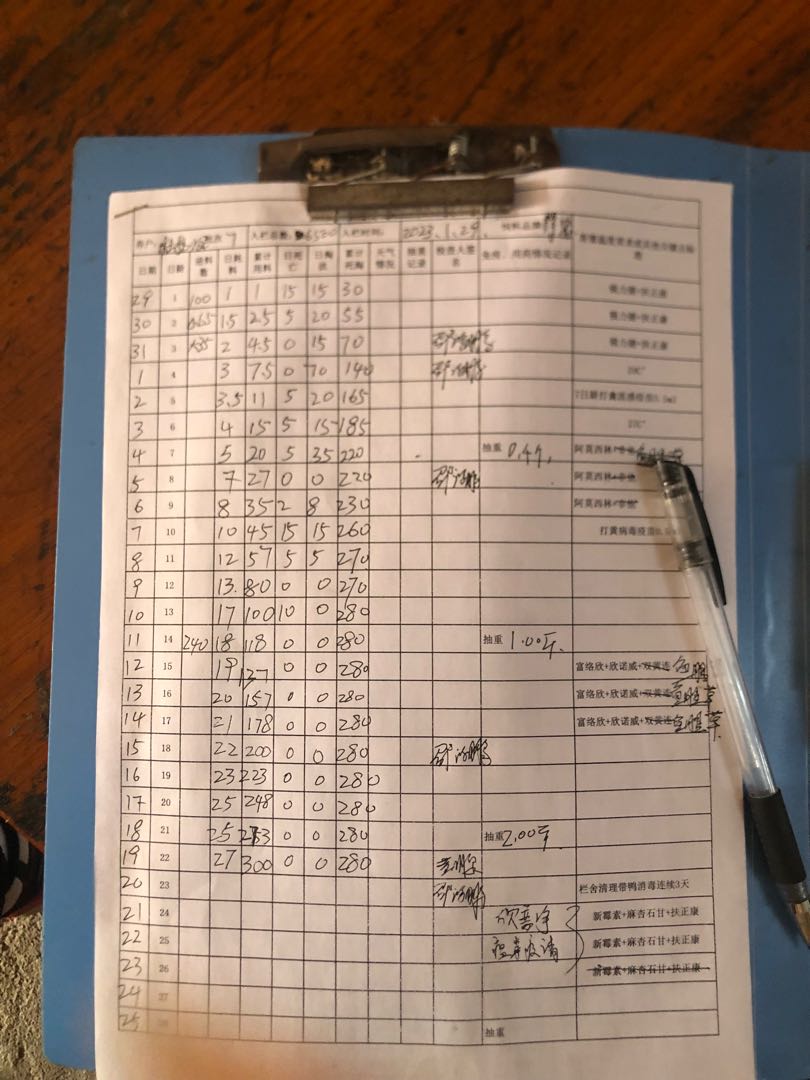 养户: 批次 7 入栏总数: 6500 入栏时间: 2023.1.29. 饲料品牌:
日期 日龄 领料数 日耗料 累计用料 日死亡 日淘汰 累计死淘 天气情况 抽查记录 检查人签名 免疫、用药情况记录
29 1 100 1 1 15 15 30 强力健+扶正康
30 2 1.5 2.5 5 20 55 强力健+扶正康
31 3 2 4.5 0 15 70 强力健+扶正康
1 4 3 7.5 0 70 140
2 5 3.5 11 5 20 165
3 6 4 15 5 15 185 27C°
4 7 5 20 5 35 220 抽重 阿莫西林+
5 8 7 27 0 0 220 阿莫西林+
6 9 8 35 2 8 230 阿莫西林+
7 10 10 45 15 15 260 打黄病毒疫苗
8 11 12 57 5 5 270
9 12 13. 80 0 0 270
10 13 17 100 10 0 280
11 14 240 18 118 0 0 280 抽重 1.00斤.
12 15 19 137 0 0 280 富络欣+欣诺威+双黄连
13 16 20 157 0 0 280 富络欣+欣诺威+双黄连
14 17 21 178 0 0 280 富络欣+欣诺威+双黄连
15 18 22 200 0 0 280
16 19 23 223 0 0 280
17 20 25 248 0 0 280
18 21 25 273 0 0 280 抽重 2.00斤.
19 22 27 300 0 0 280
20 23 栏舍清理带鸭消毒连续3天
21 24 新霉素+麻杏石甘+扶正康
22 25 新霉素+麻杏石甘+扶正康
23 26 新霉素+麻杏石甘+扶正康
24 27
25 28 抽重